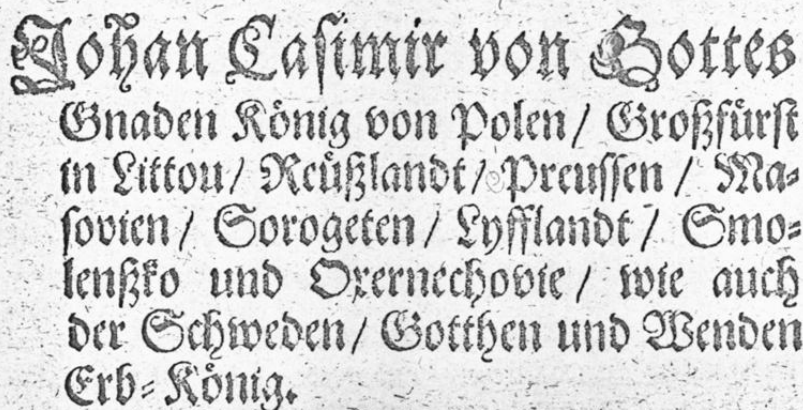 Johan Casimir von Gottes
Gnaden König von Polen / Großfürst
in Littou / Reüßlandt / Preussen / Ma-
sovien / Sorogeten / Lyfflandt / Smo-
lenßko und Oxernechovie / wie auch
der Schweden / Gotthen und Wenden
Erb-König.